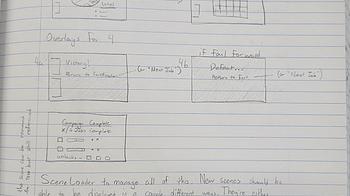 Overlays for 4
if fail forward
4a
Victory!
Return to
(or "New Job")
4b
Defeat...
Return to
(or "New Job")
Campaign Complete
x/4 Jobs Complete
Unlocks:
SceneLoader to manage all of this. Now scenes should be
able to be displayed in a couple different ways. They're either